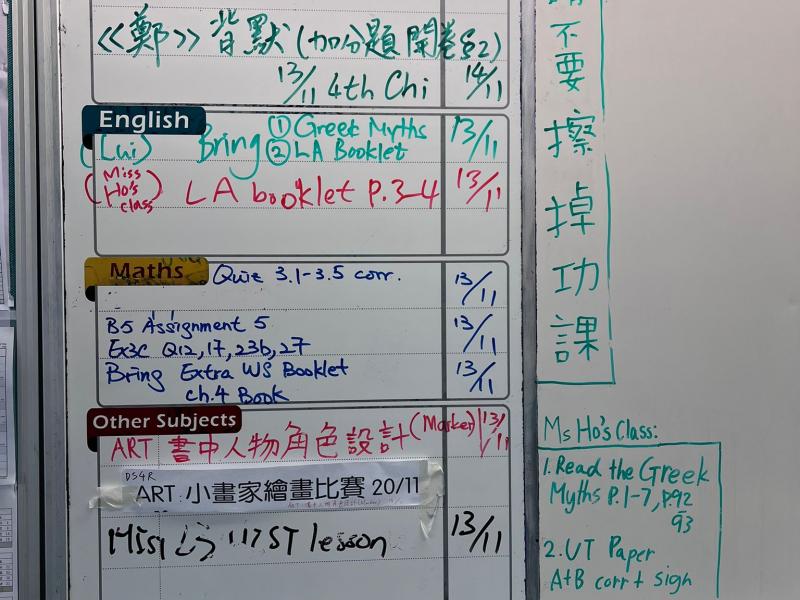 《鄭》背默(加分題開卷§2)
13/11 4th Chi 14/11
English
(Lui) Bring ① Greek Myths 13/11
② LA Booklet
(Miss Ho's class) LA booklet P.3-4 13/11
Maths
Quiz 3.1-3.5 corr. 13/11
B5 Assignment 5 13/11
Ex3C Q12,17,23b,27
Bring Extra WS Booklet 13/11
ch.4 Book
Other Subjects
ART 書中人物角色設計(Marker) 13/11
DS4R
ART:小畫家繪畫比賽 20/11
lesson 13/11
不要擦掉功課
Ms Ho's Class:
1. Read the Greek
Myths P.1-7, P.92
93
2. UT Paper
A+B corr + sign